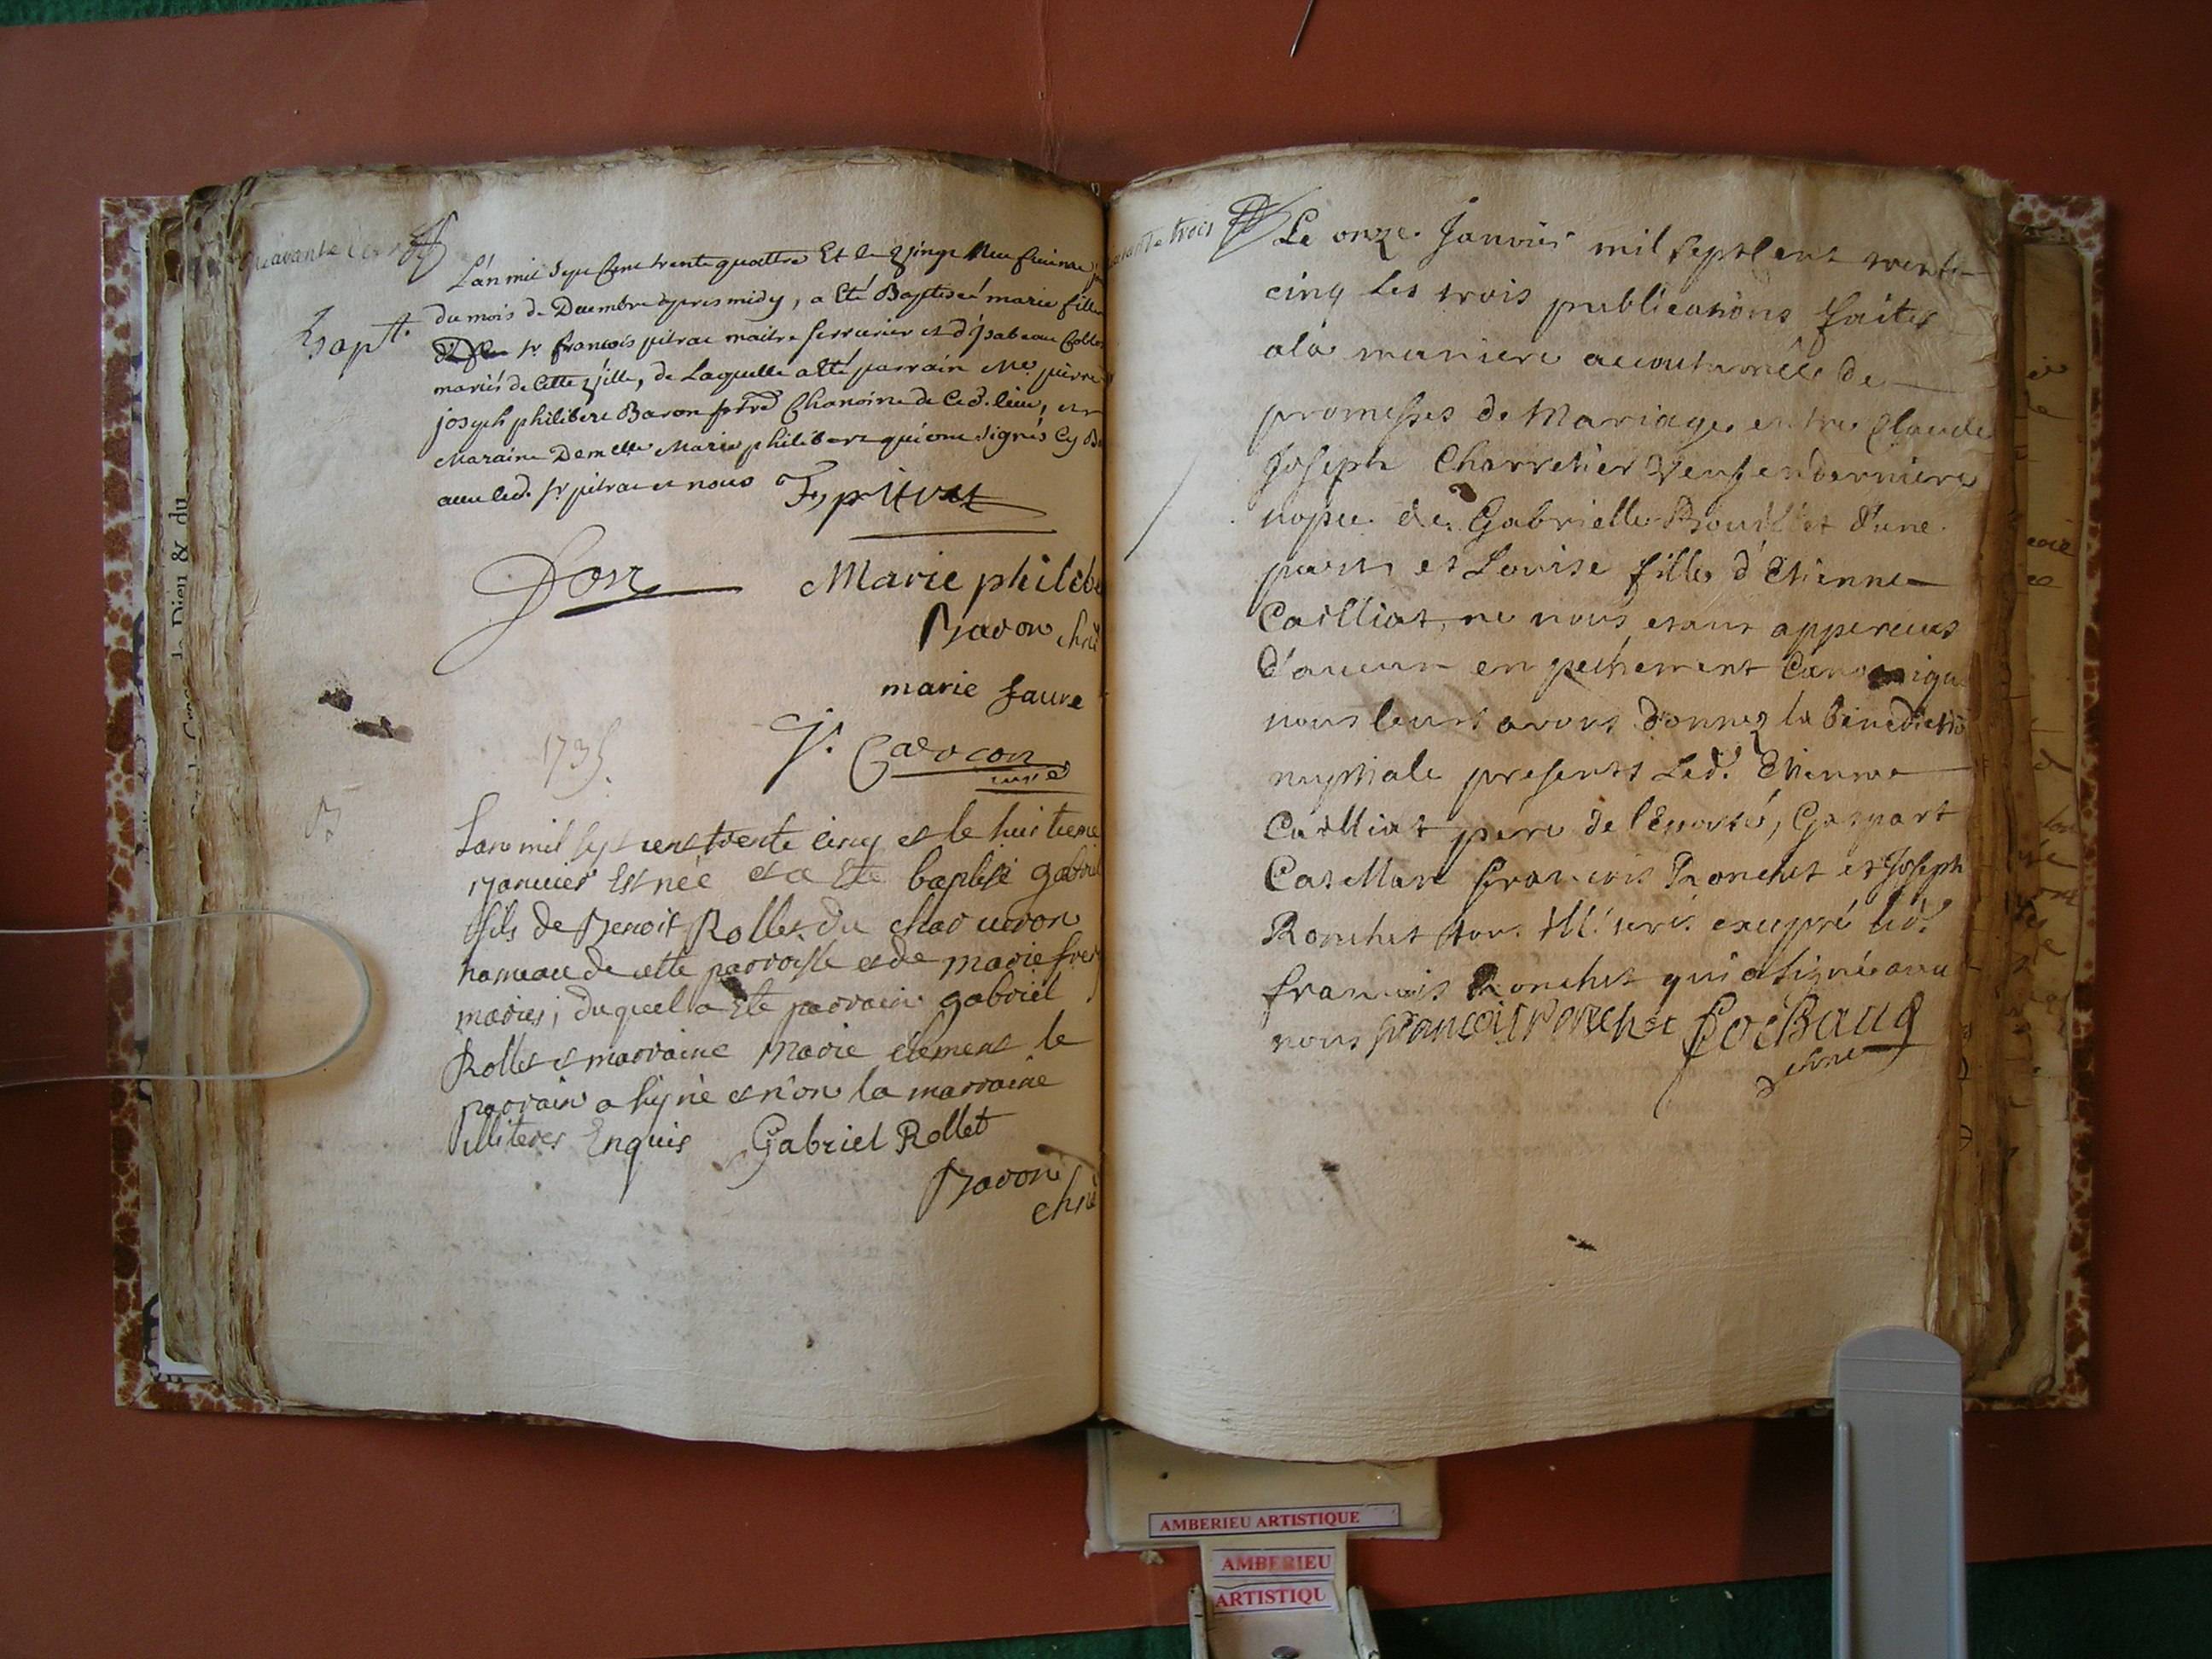 L'an mil sept cent trente quattre Et le vingt neufvieme
du mois de Decembre apres midy, a été Baptisée marie fille
sr francois pitrac maitre serrurier et d'jsabeau
mariés de Cette ville, de Laquelle a été parrain Mre pierre
joseph philibert Baron pretre Chanoine de Ced. lieu, et
Maraine Demelle Marie philibert qui ont signés Cy
avec led. sr pitrac et nous
Bapt.
Marie philibe
Baron
marie faure
curé
1735.
B
Lan mil sept cent trente cinq et le huitieme
janvier Est née et a Eté baptisé gabriel
fils de Benoit Rollet du
hameau de cette parroisse et de marie
mariés; duquel a Eté parrain gabriel
Rollet et marraine marie clement le
parrain a signé et non la marraine
illiteres Enquis Gabriel Rollet
Baron
trois
Le onze Janvier mil sept cent trente
cinq les trois publications faites
a la maniere accoutumée de
promesses de Mariage entre Claude
Joseph Charretier veuf en dernieres
nopce de Gabrielle Bouillet d'une
part et Louise fille d'Etienne
Cailliat, ne nous etant apperçus
d'aucun enpechement
nous leurs avons donnez la benedictio
nuptiale presents Led. Etienne
Cailliat pere de l'Epousé, Gaspart
francois Ronchet et Joseph
Ronchet tous excepté led.
francois Ronchet qui a signé avec
nous francois ronchet
AMBERIEU ARTISTIQUE
AMBERIEU
ARTISTIQU